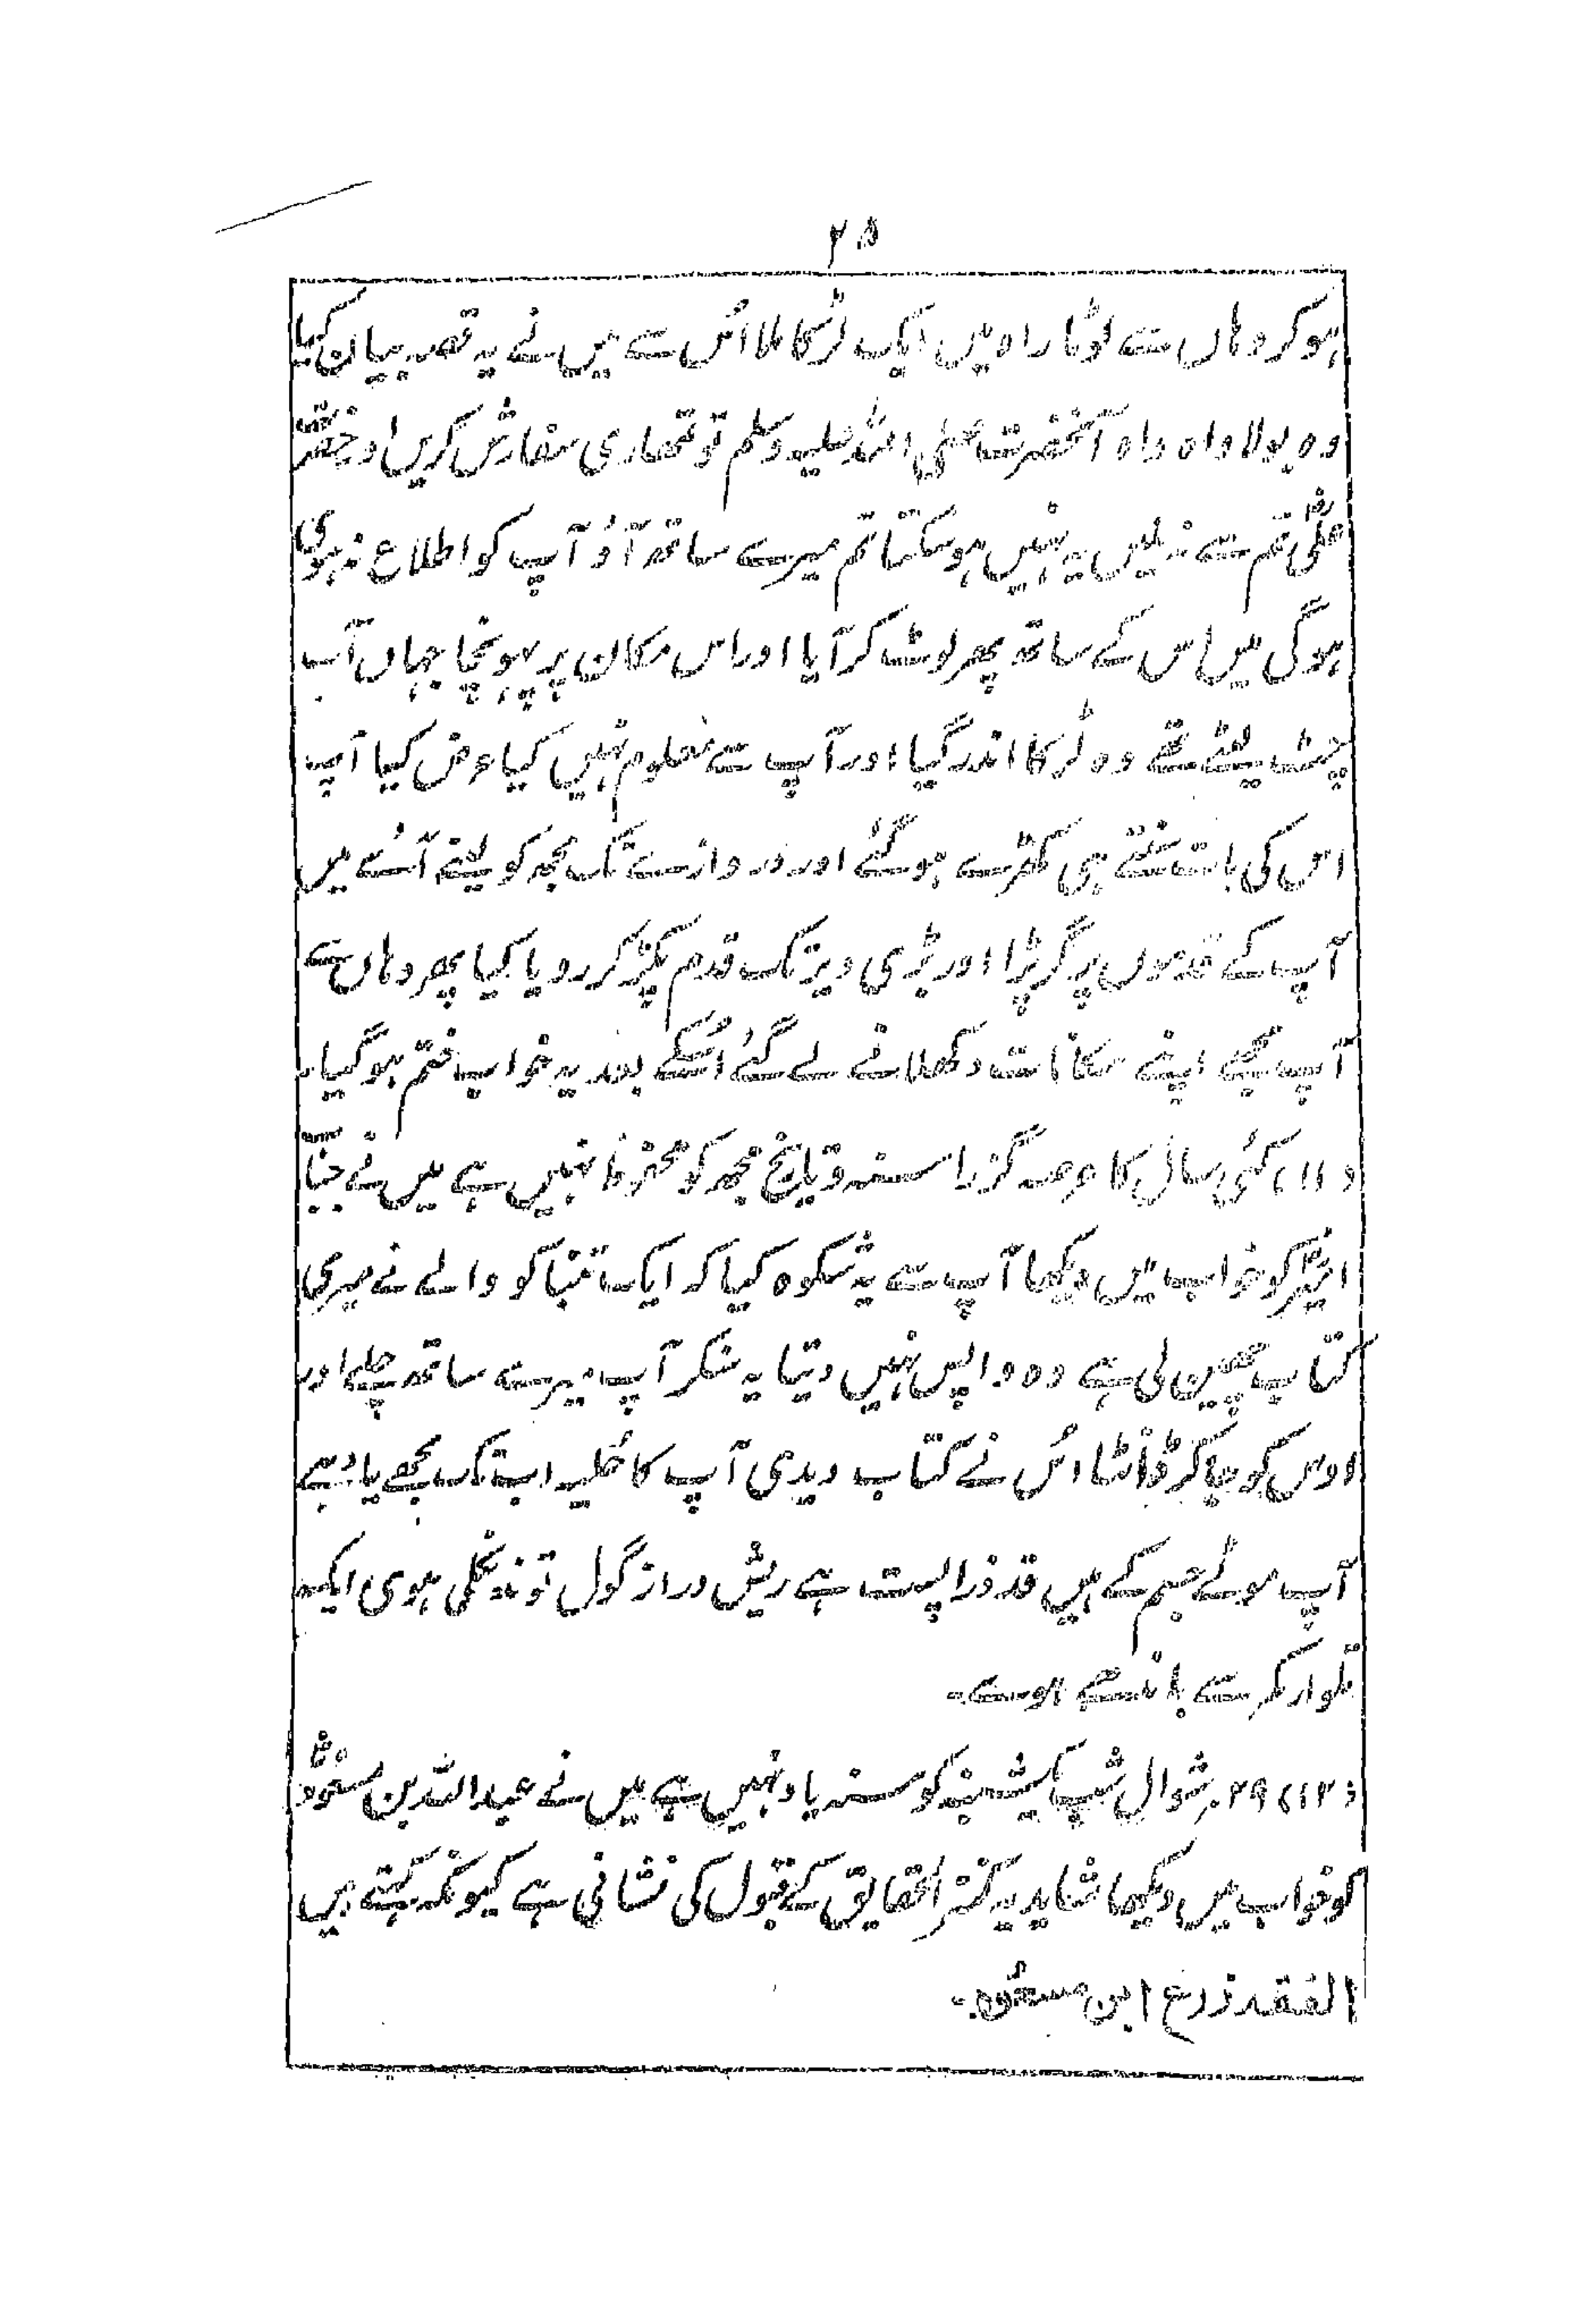 ۲۵
ہوکر وہاں سے لوٹا راہ میں ایک لڑکا ملا اُس سے میں نے یہ قصہ بیان کیا
وہ بولا واہ واہ آنحضرت صلی اللہ علیہ وسلم تو تمھاری سفارش کریں اور حضرت
علیؓ تم سے نہ ملیں یہ نہیں ہوسکتا تم میرے ساتھ آؤ آپ کو اطلاع نہ ہوی
ہوگی میں اس کے ساتھ پھر لوٹ کر آیا اور اس مکان پر پہونچا جہاں آپ
چت لیٹے تھے وہ لڑکا اندر گیا اور آپ سے معلوم نہیں کیا عرض کیا آپ
اس کی بات سنتے ہی کھڑے ہوگئے اور دروازے تک مجھ کو لینے آئے میں
آپ کے قدموں پر گر پڑا اور بڑی دیر تک قدم پکڑ کر رویا کیا پھر وہاں سے
آپ مجھے اپنے مکانات دکھلانے لے گئے اُسکے بعد یہ خواب ختم ہوگیا۔
(۱۱) کئی سال کا عرصہ گزرا سنہ و تاریخ مجھ کو محفوظ نہیں ہے میں نے جناب
امیرؓ کو خواب میں دیکھا آپ سے یہ شکوہ کیا کہ ایک تنباکو والے نے میری
کتاب چھین لی ہے وہ واپس نہیں دیتا یہ سنکر آپ میرے ساتھ چلے اور
اوس کو جاکر ڈانٹا اُس نے کتاب دیدی آپ کا حُلیہ اب تک مجھے یاد ہے
آپ موٹے جسم کے ہیں قد ذرا پست ہے ریش دراز گول توند نکلی ہوی ایک
تلوار کمر سے باندھے ہوے۔
(۱۲) ۲۹ شوال شب یکشنبہ کو سنہ یاد نہیں ہے میں نے عبداللہ بن مسعودؓ
کو خواب میں دیکھا شاید یہ کنز الحقایق کے قبول کی نشانی ہے کیونکہ کہتے ہیں
الفقہ زرع ابن مسعودؓ۔